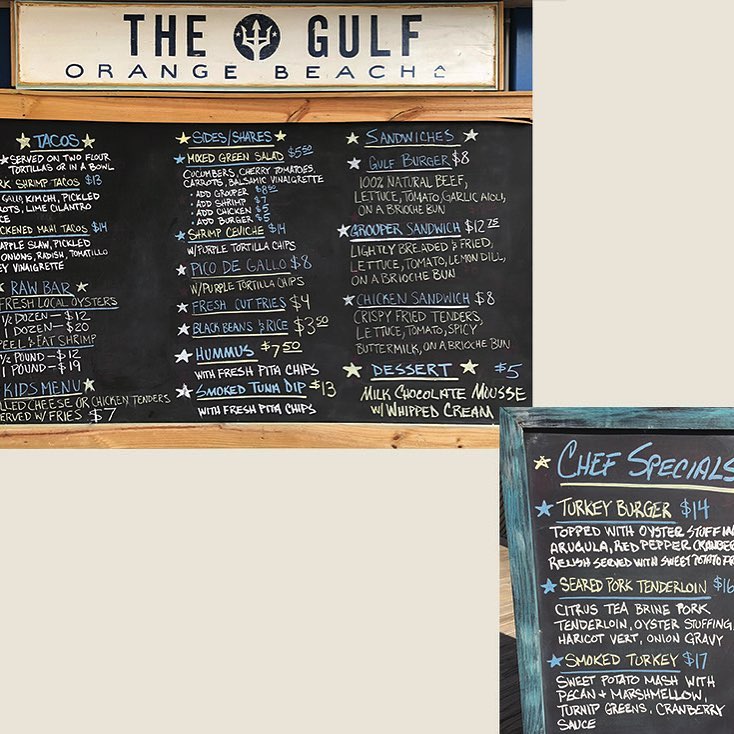 THE GULF
ORANGE BEACH
TACOS
SERVED ON TWO FLOUR
TORTILLAS OR IN A BOWL
RK SHRIMP TACOS $13
KIMCHI, PICKLED
OTS, LIME CILANTRO
CE
CKENED MAHI TACOS $14
APPLE SLAW, PICKLED
ONIONS, RADISH, TOMATILLO
EY VINAIGRETTE
RAW BAR
FRESH LOCAL OYSTERS
1/2 DOZEN—$12
1 DOZEN—$20
PEEL & EAT SHRIMP
1/2 POUND—$12
1 POUND—$19
KIDS MENU
LLED CHEESE OR CHICKEN TENDERS
ERVED W/ FRIES $7
SIDES/SHARES
MIXED GREEN SALAD $5.50
CUCUMBERS, CHERRY TOMATOES,
CARROTS, BALSAMIC VINAIGRETTE
• ADD GROUPER
• ADD SHRIMP $7
• ADD CHICKEN $5
• ADD BURGER $5
SHRIMP CEVICHE $14
W/PURPLE TORTILLA CHIPS
PICO DE GALLO $8
W/PURPLE TORTILLA CHIPS
FRESH CUT FRIES $4
BLACK BEANS & RICE $3.50
HUMMUS $7.50
WITH FRESH PITA CHIPS
SMOKED TUNA DIP $13
WITH FRESH PITA CHIPS
SANDWICHES
GULF BURGER $8
100% NATURAL BEEF,
LETTUCE, TOMATO, GARLIC AIOLI,
ON A BRIOCHE BUN
GROUPER SANDWICH $12.75
LIGHTLY BREADED & FRIED,
LETTUCE, TOMATO, LEMON DILL,
ON A BRIOCHE BUN
CHICKEN SANDWICH $8
CRISPY FRIED TENDERS,
LETTUCE, TOMATO, SPICY
BUTTERMILK, ON A BRIOCHE BUN
DESSERT $5
MILK CHOCOLATE MOUSSE
W/ WHIPPED CREAM
CHEF SPECIALS
TURKEY BURGER $14
TOPPED WITH OYSTER STUFFIN
ARUGULA, RED PEPPER CRANBER
RELISH SERVED WITH SWEET POTATO FR
SEARED PORK TENDERLOIN $16
CITRUS TEA BRINE PORK
TENDERLOIN, OYSTER STUFFING,
HARICOT VERT, ONION GRAVY
SMOKED TURKEY $17
SWEET POTATO MASH WITH
PECAN + MARSHMELLOW,
TURNIP GREENS, CRANBERRY
SAUCE